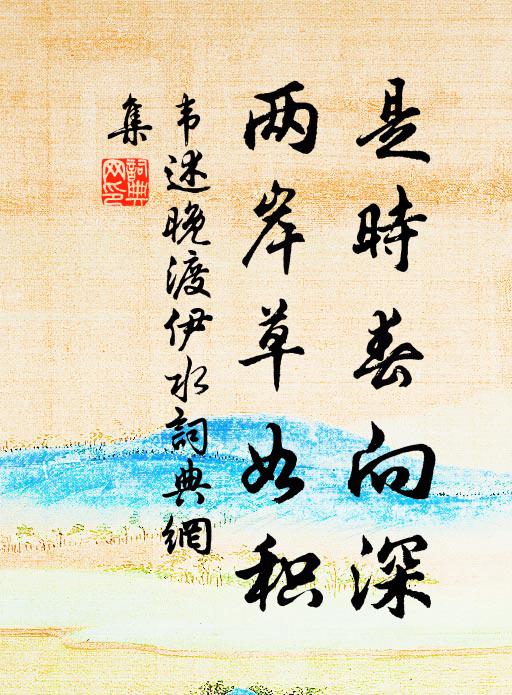 是時春向深
两岸草如积
韦述晚渡伊水詞典網
集
詞典网印